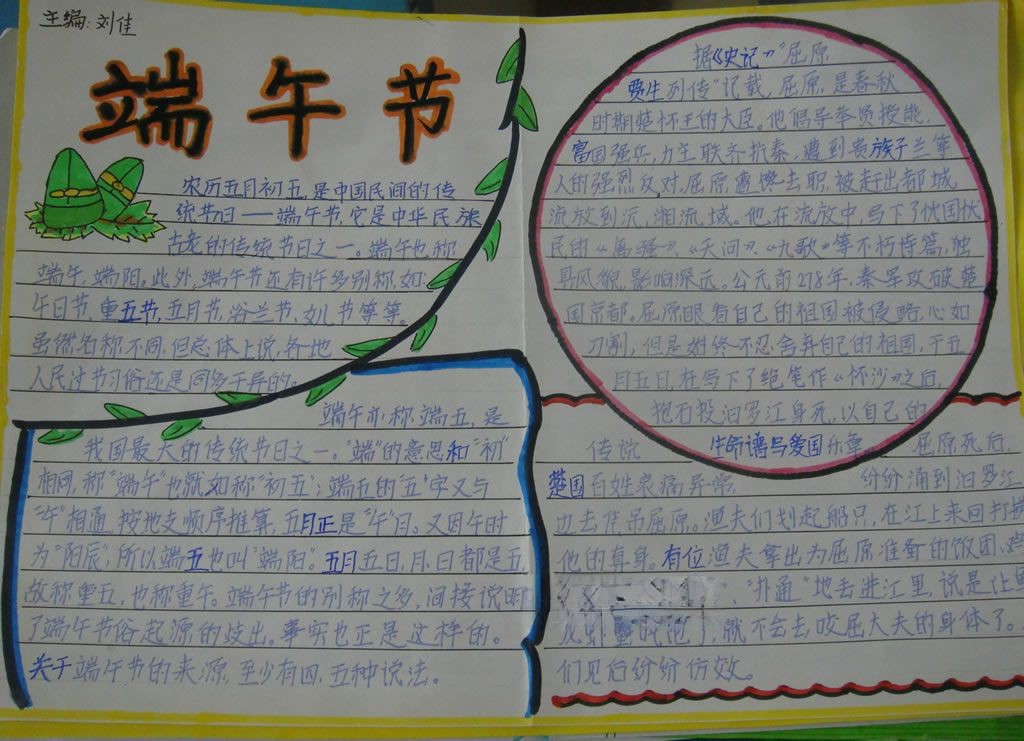 主编：刘佳
端午节
农历五月初五，是中国民间的传
统节日——端午节，它是中华民族
古老的传统节日之一。端午也称
端午，端阳。此外，端午节还有许多别称，如：
午日节，重五节，五月节，浴兰节，女儿节等等。
虽然名称不同，但总体上说，各地
人民过节习俗还是同多于异的。
端午亦称端五，是
我国最大的传统节日之一。“端”的意思和“初”
相同，称“端午”也就如称“初五”；端五的“五”字又与
“午”相通，按地支顺序推算，五月正是“午”月。又因午时
为“阳辰”，所以端五也叫“端阳”。五月五日，月、日都是五，
故称重五，也称重午。端午节的别称之多，间接说明
了端午节俗起源的歧出。事实也正是这样的。
关于端午节的来源，至少有四、五种说法。
据《史记》“屈原
贾生列传”记载，屈原，是春秋
时期楚怀王的大臣。他倡导举贤授能，
富国强兵，力主联齐抗秦，遭到贵族子兰等
人的强烈反对，屈原遭馋去职，被赶出都城，
流放到沅、湘流域。他在流放中，写下了忧国忧
民的《离骚》、《天问》、《九歌》等不朽诗篇，独
具风貌，影响深远。公元前278年，秦军攻破楚
国京都。屈原眼看自己的祖国被侵略，心如
刀割，但是始终不忍舍弃自己的祖国，于五
月五日，在写下了绝笔作《怀沙》之后，
抱石投汨罗江身死，以自己的
生命谱写爱国乐章。
传说 屈原死后，
楚国百姓哀痛异常， 纷纷涌到汨罗江
边去凭吊屈原。渔夫们划起船只，在江上来回打捞
他的真身。有位渔夫拿出为屈原准备的饭团、鸡
“扑通”地丢进江里，说是让鱼
吃饱了，就不会去咬屈大夫的身体了。
们见后纷纷仿效。